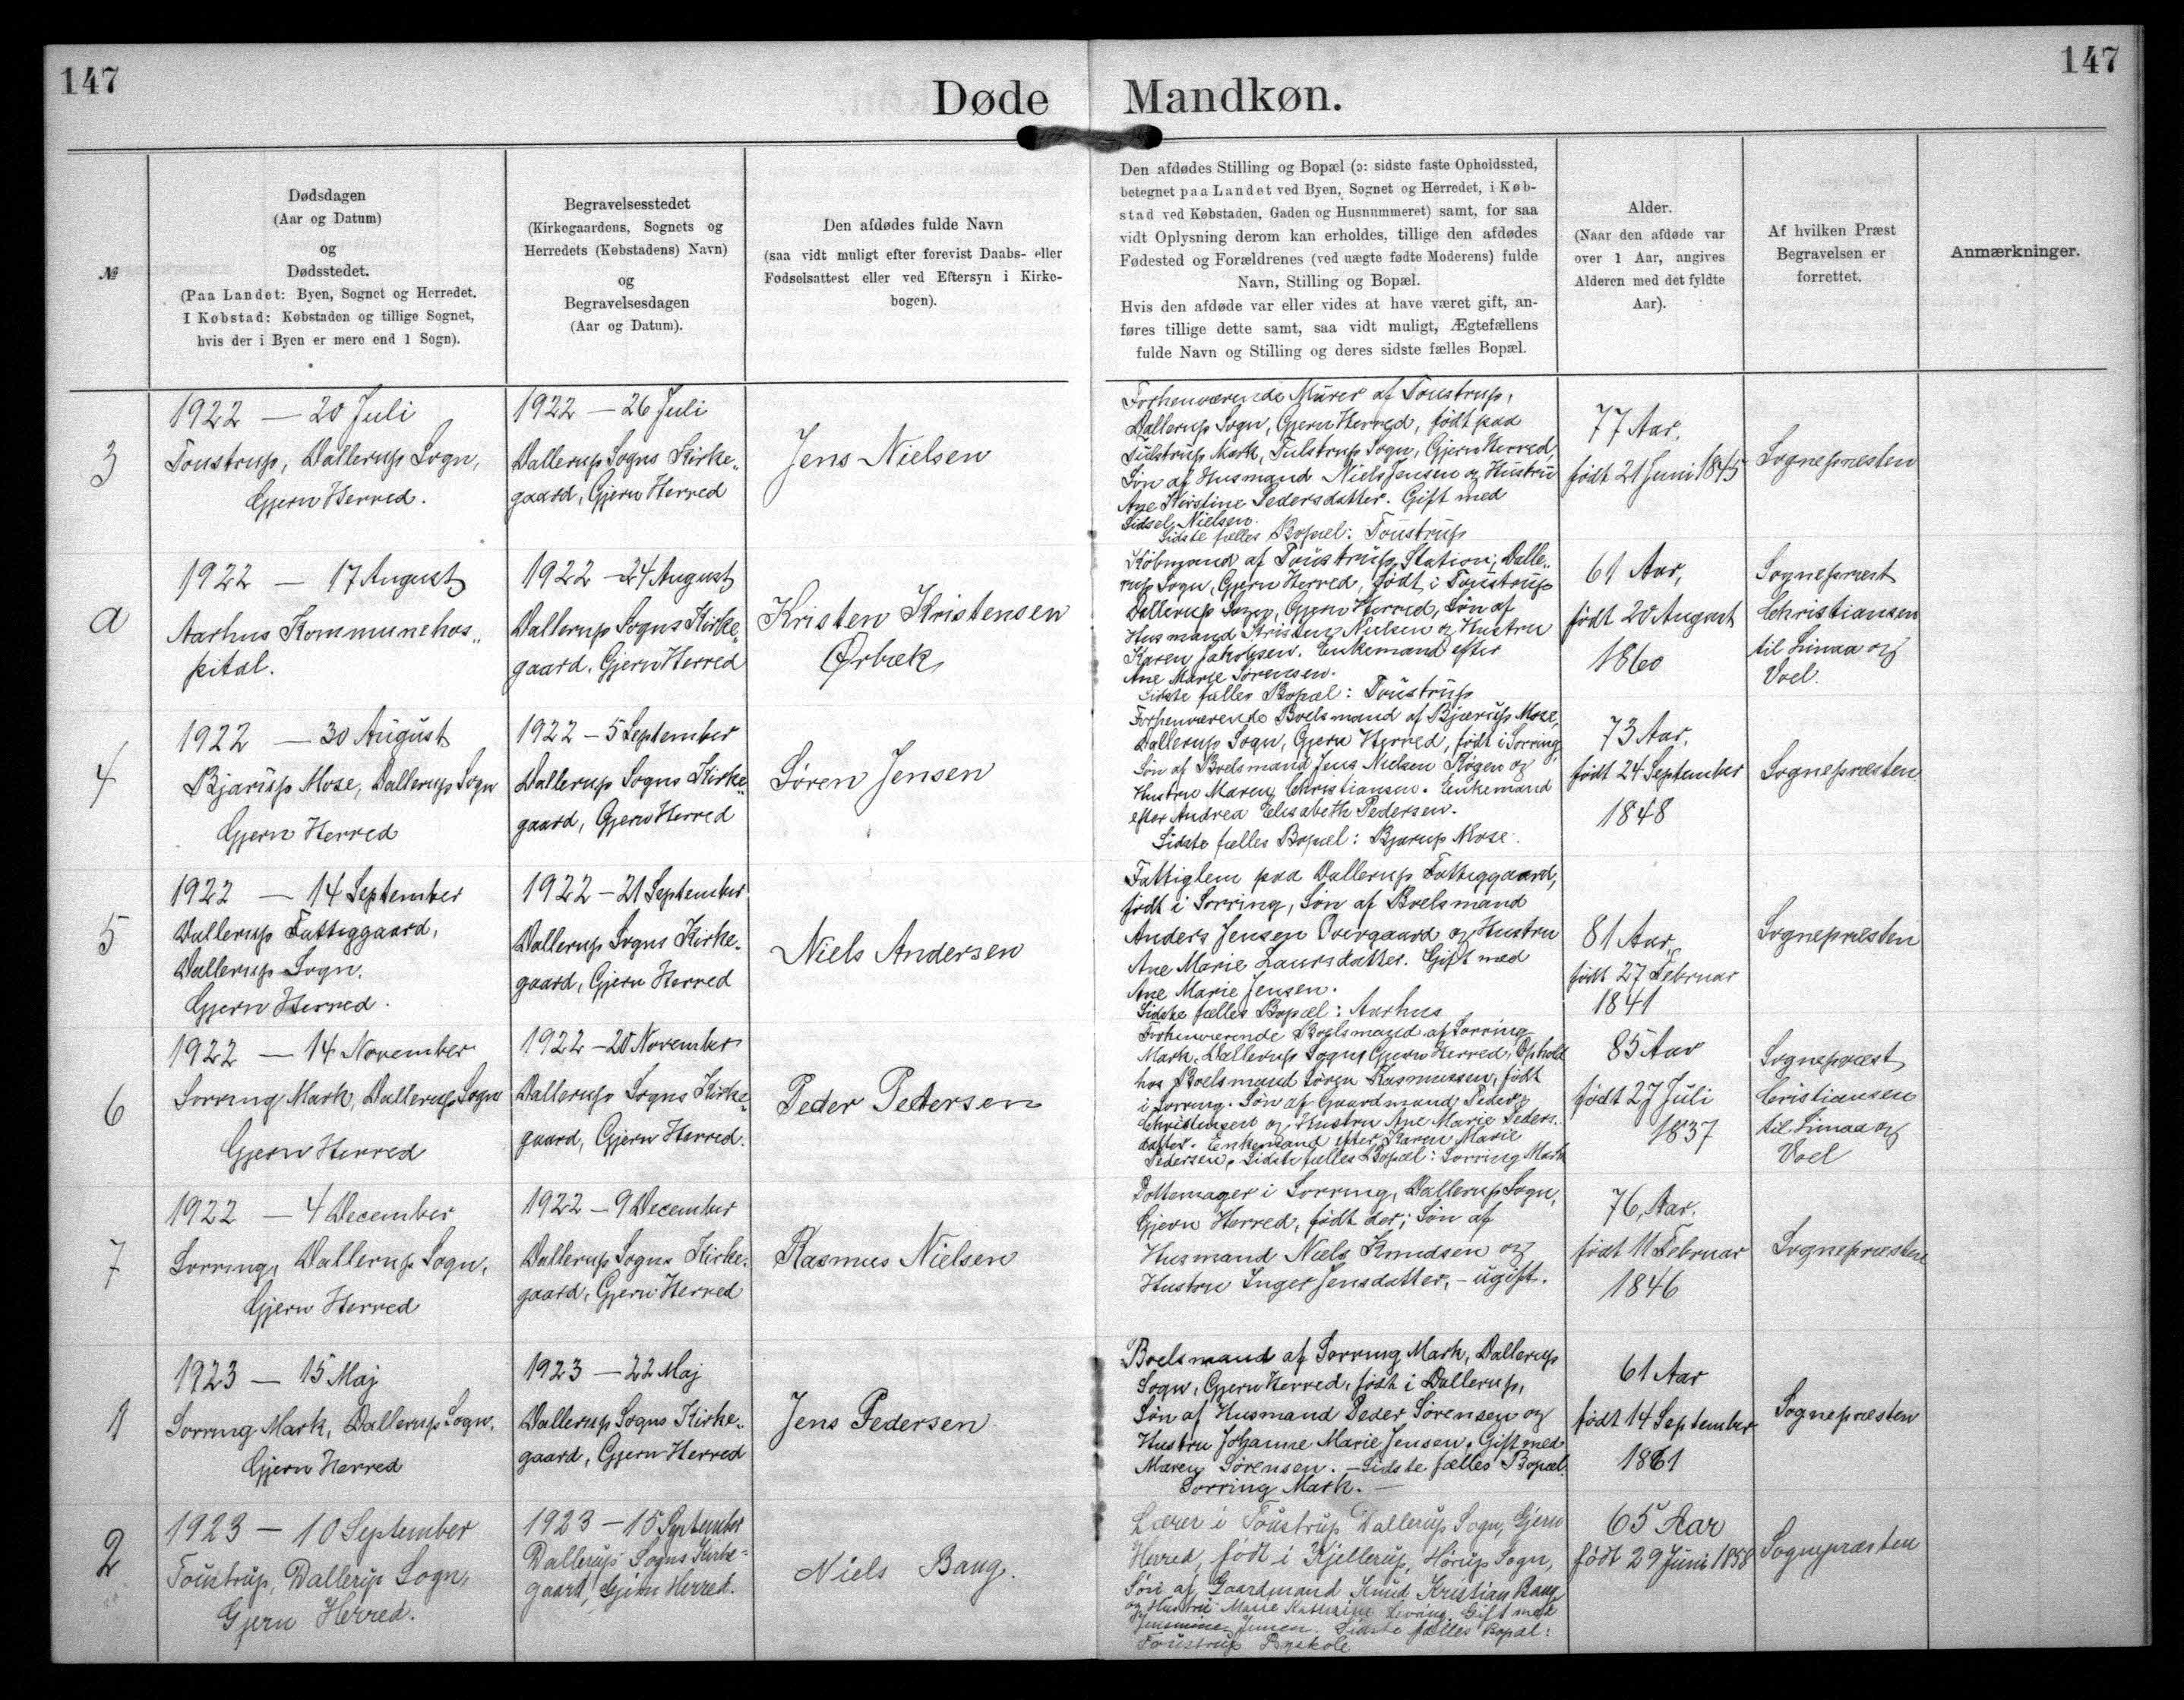 147
147
Døde Mandkøn.
№
Dødsdagen
(Aar og Datum)
og
Dødsstedet.
(Paa Landet: Byen, Sognet og Herredet.
I Købstad: Købstaden og tillige Sognet,
hvis der i Byen er mere end 1 Sogn).
Begravelsesstedet
(Kirkegaardens, Sognets og
Herredets (Købstadens) Navn)
og
Begravelsesdagen
(Aar og Datum).
Den afdødes fulde Navn
(saa vidt muligt efter forevist Daabs- eller
Fødselsattest eller ved Eftersyn i Kirke-
bogen).
Den afdødes Stilling og Bopæl (ɔ: sidste faste Opholdssted,
betegnet paa Landet ved Byen, Sognet og Herredet, i Køb-
stad ved Købstaden, Gaden og Husnummeret) samt, for saa
vidt Oplysning derom kan erholdes, tillige den afdødes
Fødested og Forældrenes (ved uægte fødte Moderens) fulde
Navn, Stilling og Bopæl.
Hvis den afdøde var eller vides at have været gift, an-
føres tillige dette samt, saa vidt muligt, Ægtefællens
fulde Navn og Stilling og deres sidste fælles Bopæl.
Alder.
(Naar den afdøde var
over 1 Aar, angives
Alderen med det fyldte
Aar).
Af hvilken Præst
Begravelsen er
forrettet.
Anmærkninger.
3
1922 — 20 Juli
Toustrup, Dallerup Sogn,
Gjern Herred.
1922 — 26 Juli
Dallerup Sogns Kirke„
gaard, Gjern Herred
Jens Nielsen
Forhenværende Murer af Toustrup,
Dallerup Sogn, Gjern Herred, født paa
Tulstrup Mark, Tulstrup Sogn, Gjern Herred,
Søn af Husmand Niels Jensen og Hustru
Ane Kirstine Pedersdatter. Gift med
Sidsel Nielsen.
Sidste fælles Bopæl: Toustrup
77 Aar.
født 21 Juni 1845
Sognepræsten
a
1922 — 17 August
Aarhus Kommunehos„
pital.
1922 — 24 August
Dallerup Sogns Kirke„
gaard. Gjern Herred
Kristen Kristensen
Ørbæk
Købmand af Toustrup Station, Dalle„
rup Sogn, Gjern Herred, født i Toustrup
Dallerup Sogn, Gjern Herred, Søn af
Husmand Kristen Nielsen og Hustru
Karen Jakobsen. Enkemand efter
Ane Marie Sørensen.
Sidste fælles Bopæl: Toustrup
61 Aar,
født 20 August
1860
Sognepræst
Christiansen
til Linaa og
Voel.
4
1922 — 30 August
Bjarup Mose, Dallerup Sogn
Gjern Herred
1922 — 5 September
Dallerup Sogns Kirke„
gaard, Gjern Herred
Søren Jensen
Forhenværende Boelsmand af Bjarup Mose,
Dallerup Sogn, Gjern Herred, født i Sorring,
Søn af Boelsmand Jens Nielsen Røgen og
Hustru Maren Christiansen. Enkemand
efter Andrea Elisabeth Pedersen.
Sidste fælles Bopæl: Bjarup Mose.
73 Aar.
født 24 September
1848
Sognepræsten
5
1922 — 14 September
Dallerup Fattiggaard,
Dallerup Sogn.
Gjern Herred.
1922 — 21 September
Dallerup Sogns Kirke„
gaard, Gjern Herred
Niels Andersen
Fattiglem paa Dallerup Fattiggaard,
født i Sorring, Søn af Boelsmand
Anders Jensen Overgaard og Hustru
Ane Marie Laursdatter. Gift med
Ane Marie Jensen.
Sidste fælles Bopæl: Aarhus
81 Aar,
født 27 Februar
1841
Sognepræsten
6
1922 — 14 November
Sorring Mark, Dallerup Sogn
Gjern Herred
1922 — 20 November
Dallerup Sogns Kirke„
gaard, Gjern Herred.
Peder Pedersen
Forhenværende Boelsmand af Sorring
Mark, Dallerup Sogn, Gjern Herred, Ophold
hos Boelsmand Søren Rasmussen, født
i Sorring. Søn af Gaardmand Peder
Christensen og Hustru Ane Marie Peders„
datter. Enkemand efter Karen Marie
Pedersen. Sidste fælles Bopæl: Sorring Mark
85 Aar
født 27 Juli
1837
Sognepræst
Cristiansen
til Linaa og
Voel
7
1922 — 4 December
Sorring, Dallerup Sogn,
Gjern Herred
1922 — 9 December
Dallerup Sogns Kirke„
gaard, Gjern Herred
Rasmus Nielsen
Pottemager i Sorring, Dallerup Sogn,
Gjern Herred, født der; Søn af
Husmand Niels Knudsen og
Hustru Inger Jensdatter, — ugift.
76 Aar.
født 11 Februar
1846
Sognepræsten
1
1923 — 15 Maj
Sorring Mark, Dallerup Sogn,
Gjern Herred
1923 — 22 Maj
Dallerup Sogns Kirke„
gaard, Gjern Herred
Jens Pedersen
Boelsmand af Sorring Mark, Dallerup
Sogn, Gjern Herred, født i Dallerup,
Søn af Husmand Peder Sørensen og
Hustru Johanne Marie Jensen. Gift med
Maren Sørensen. — Sidste fælles Bopæl.
Sorring Mark. —
61 Aar
født 14 September
1861
Sognepræsten
2
1923 — 10 September
Toustrup, Dallerup Sogn,
Gjern Herred.
1923 — 15 September
Dallerup Sogns Kirke=
gaard, Gjern Herred.
Niels Bang.
Lærer i Toustrup Dallerup Sogn, Gjern
Herred, født i Kjellerup, Hørup Sogn,
Søn af Gaardmand Knud Kristian Bang
og Hustru Marie Kathrine Gift med
Jensen. Sidste fælles Bopæl:
Toustrup Byskole
65 Aar
født 29 Juni 1858
Sognepræsten